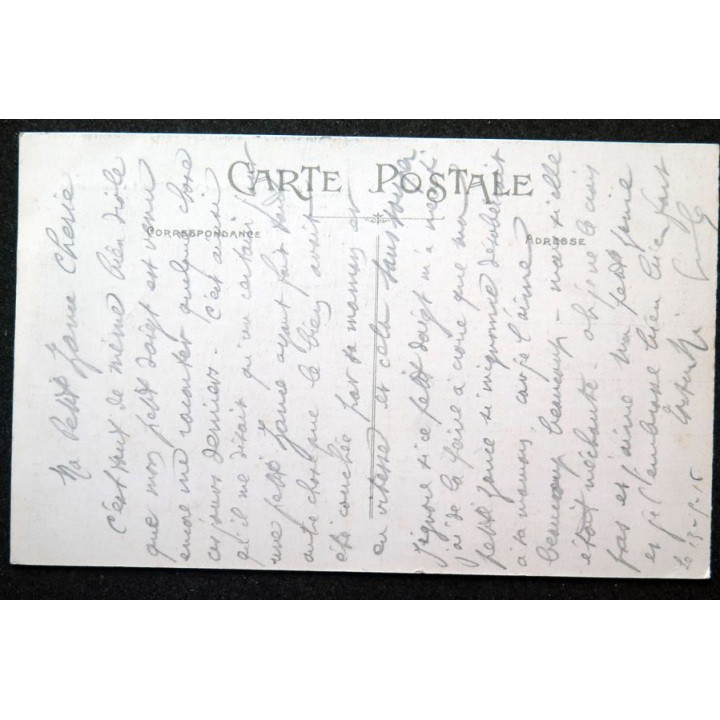 CARTE POSTALE
CORRESPONDANCE
ADRESSE
Ma Petite Jane Cherie
C'est tout de même bien drôle
que mon petit doigt est venu
encore me raconter quelque chose
ces jours derniers - c'est ainsi
qu'il me disait qu'un certain
une petite Jane ayant fait tout
autre chose que le bien avait
été couchée par sa maman
en vitesse et cela sans
J'ignore si ce petit doigt m'a
j'ai de la peine à croire que ma
petite Jane si mignonne désobeit
à ta maman, car je l'aime
beaucoup beaucoup - mais si elle
était méchante - oh je ne
pas et j'aime ma petite Jane
et je l'embrasse bien bien fort
Le 13-9-15